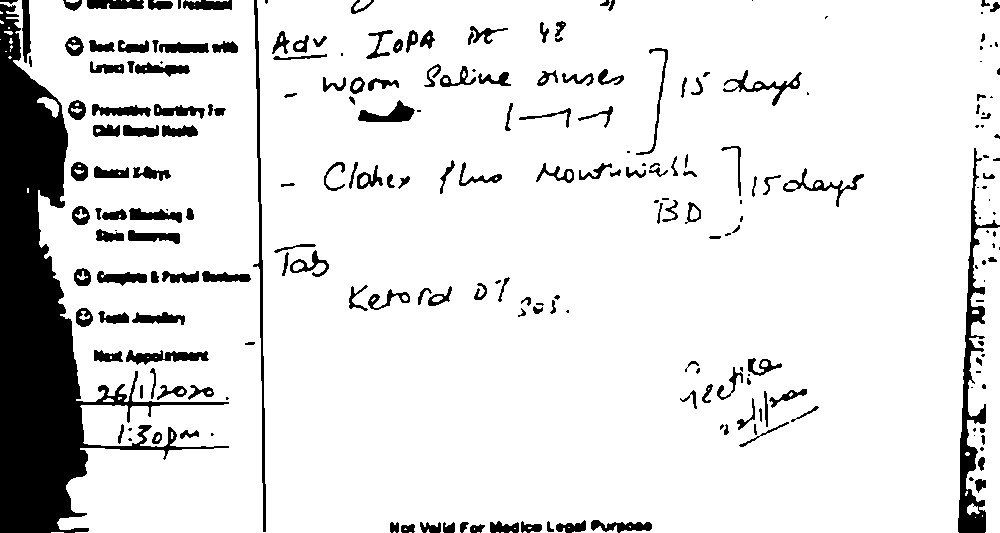 Gum Treatment
Root Canal Treatment with
Latest Techniques
Preventive Dentistry For
Child Dental Health
Dental X-Rays
Tooth Bleaching &
Stain Removing
Complete & Partial Dentures
Tooth Jewellery
Next Appointment
26/1/2020.
1:30pm.
Adv. IOPA 48
- Warm Saline rinses ] 15 days.
- Clohex Plus Mouthwash ] 15 days
BD
Tab
Ketorol DT SOS.
Geetika
Not Valid For Medico Legal Purpose